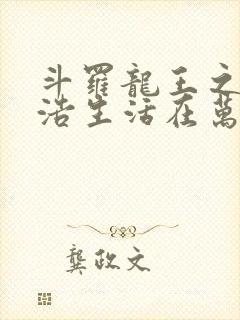 斗羅龍王之
浩生活在萬
龔政文